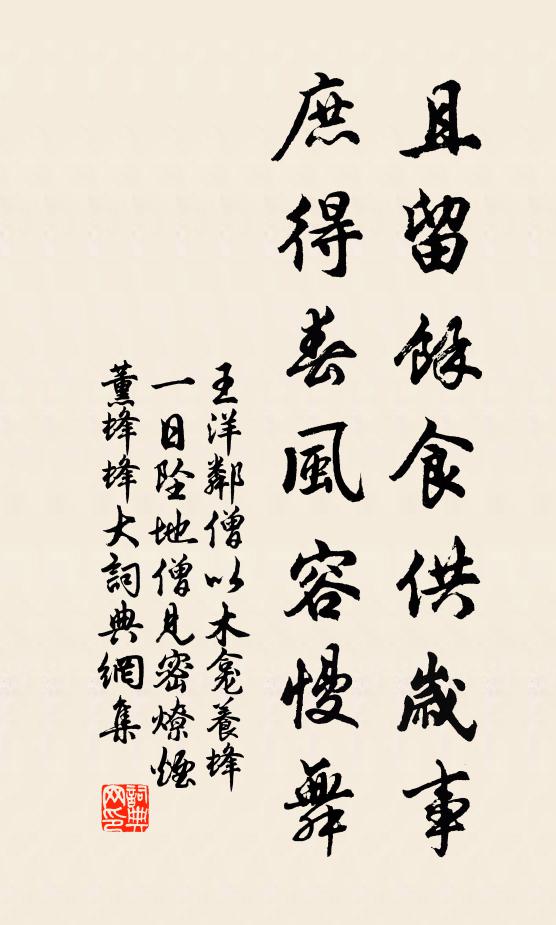 且留餘食供歲事
庶得春風容慢舞
王洋鄰僧以木龕養蜂
一日墜地僧見密燎煙
薰蜂蜂大詞典網集
詞典网印